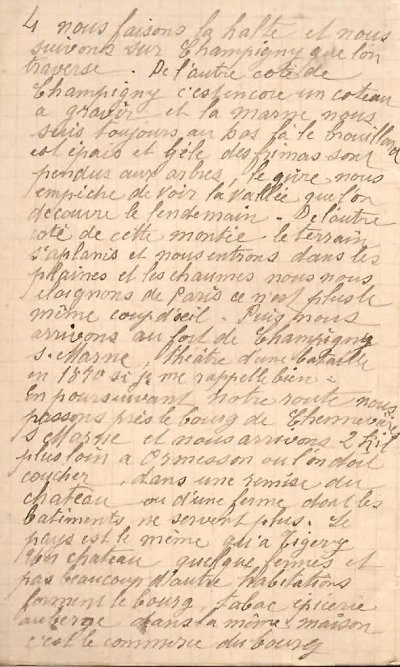 4 nous faisons la halte et nous
suivons sur Champigny que l'on
traverse. De l'autre coté de
Champigny c'est encore un coteau
a gravir et la marne nous
suis toujours au bas fa le brouillard
est épais et gèle des frimas sont
pendus aux arbres, le givre nous
empèche de voir la vallée que l'on
découvre le lendemain. De l'autre
coté de cette montée le terrain
s'aplanis et nous entrons dans les
plaines et les chaumes nous nous
eloignons de Paris ce n'est plus le
même coup d'oeil. Puis nous
arrivons au fort de Champigny
s. Marne, théâtre d'une bataille
en 1870 si je me rappelle bien =
En poursuivant notre route nous
passons près le bourg de Chennevière
s Marne et nous arrivons 2 Kil
plus loin a Ormesson ou l'on doit
coucher, dans une remise du
chateau ou d'une ferme dont les
batiments ne servent plus. Le
pays est le même qu'a Tigery
un chateau quelque fermes et
pas beaucoup d'autre habitations
forment le bourg, tabac épicerie
auberge dans la même maison
c'est le commerce du bourg